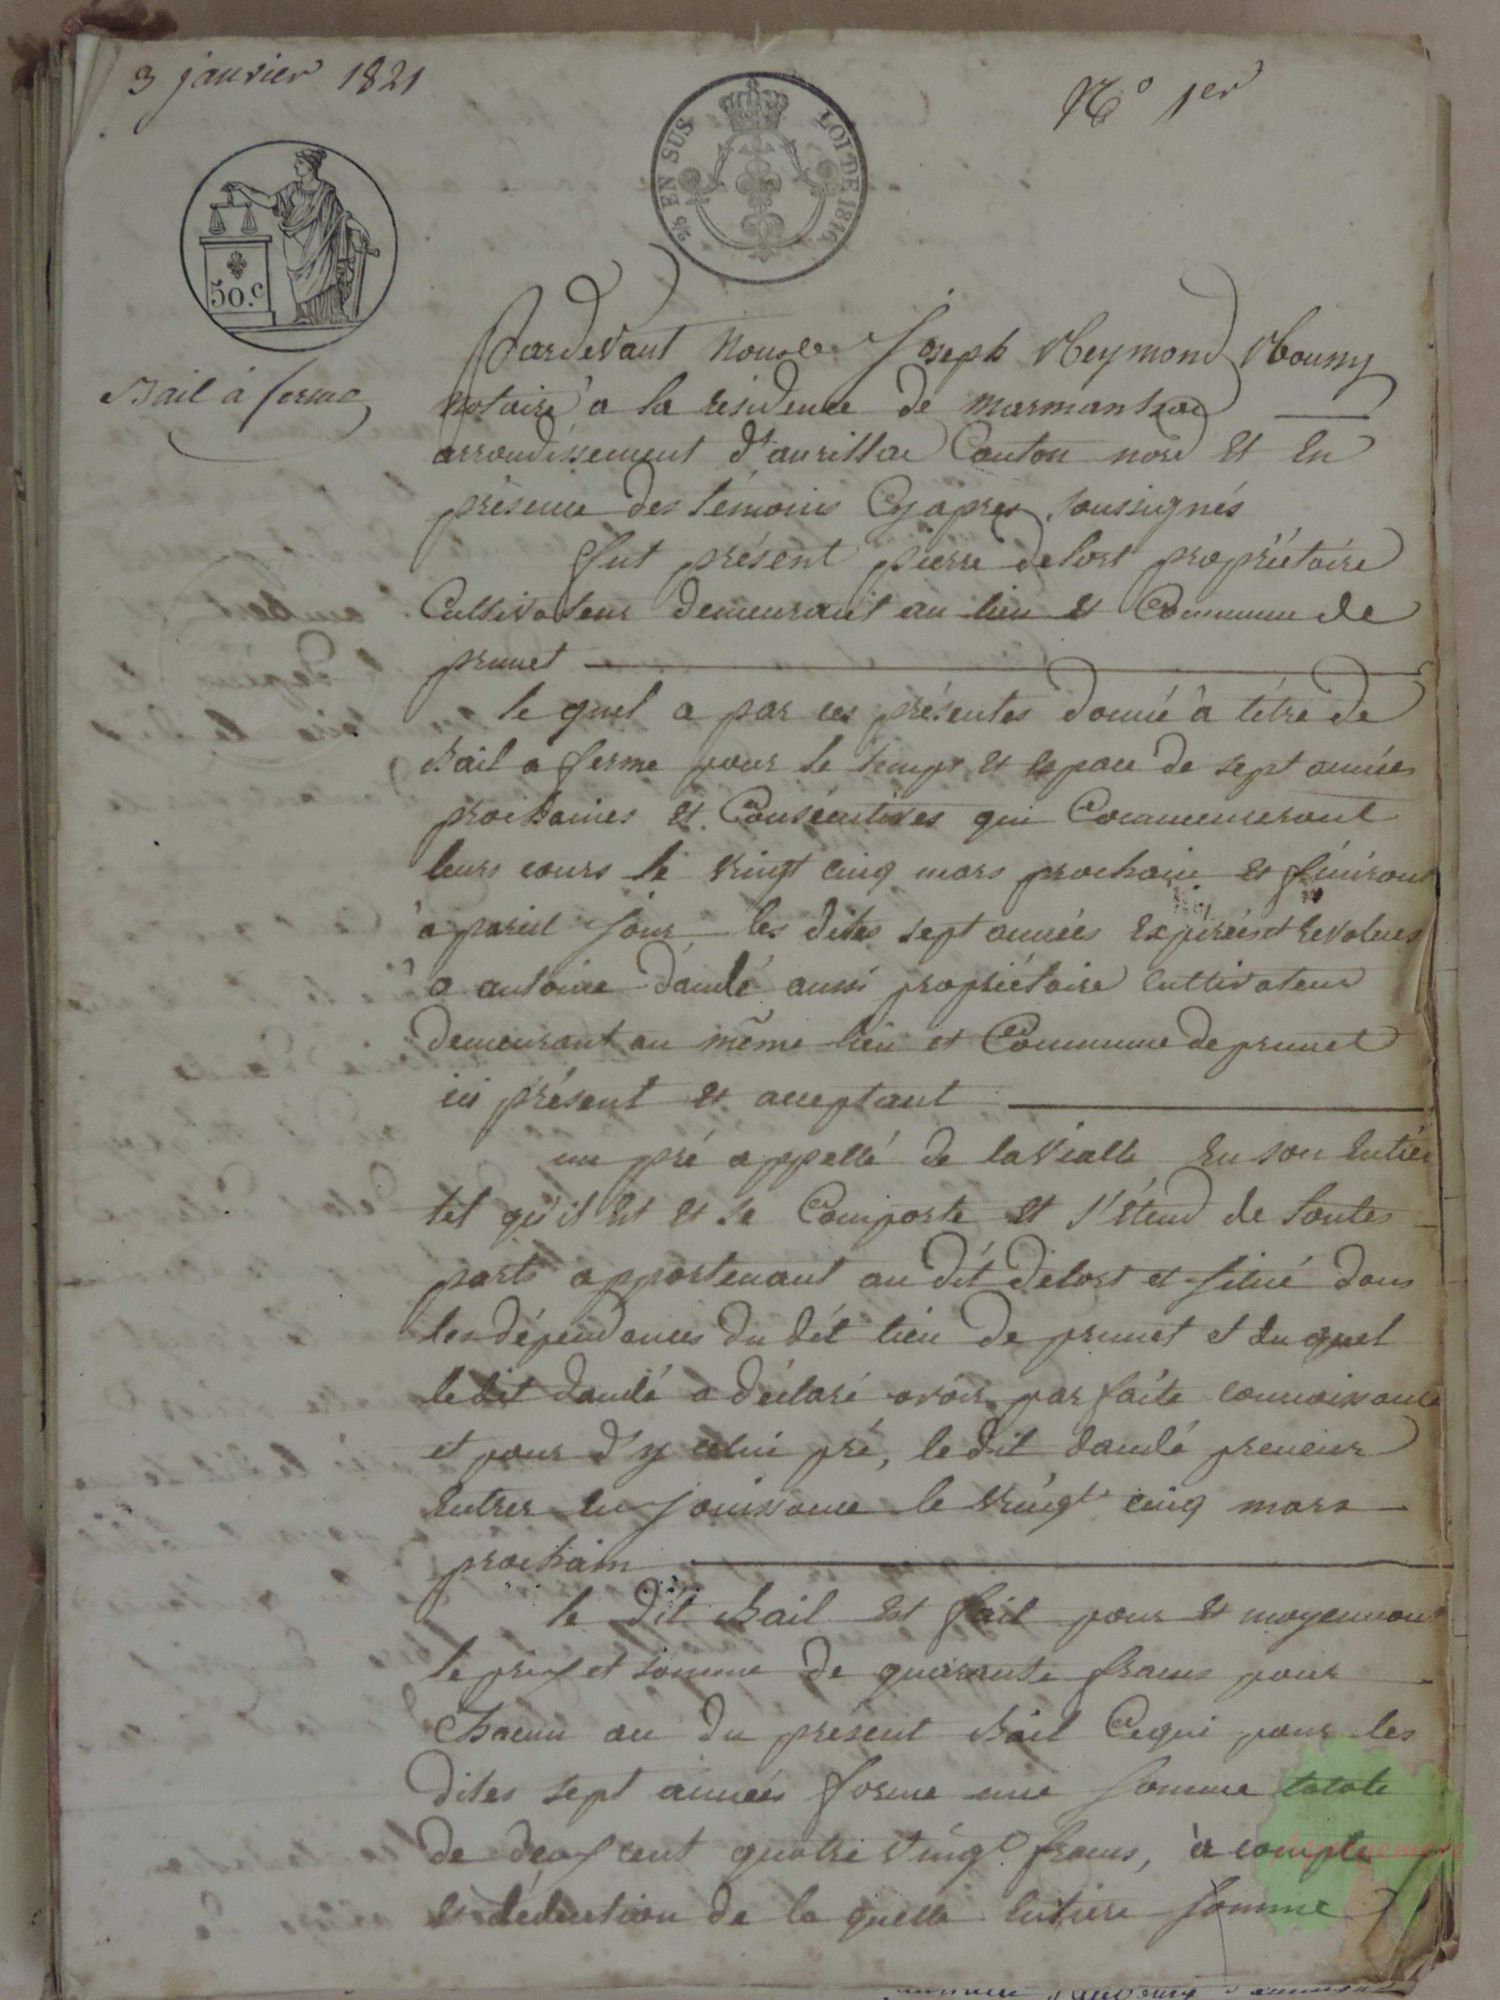 3 janvier 1821
N.o 1er
25 EN SUS LOI DE 1816.
50.c
Bail à ferme
Pardevant nous Joseph Reymond
notaire à la résidence de marmanhac
arrondissement d'aurillac Canton nord Et En
présence des témoins Cyaprès soussignés
fut présent pierre delort propriétaire
Cultivateur demeurant au lieu et Commune de
prunet
le quel a par ces présentes donné à titre de
Bail a ferme pour le temps et espace de sept années
prochaines et Consécutives qui Commenceront
leurs cours le vingt cinq mars prochain et finiront
à pareil jour les dites sept années Expirées et Revolues
a antoine daudé aussi propriétaire cultivateur
demeurant au même lieu et Commune de prunet
ici présent et acceptant
un pré appellé de lavialle En son Entier
tel qu'il Est et se Comporte et s'étend de toutes
parts appartenant au dit delort et situé dans
les dépendances du dit lieu de prunet et du quel
le dit daudé a déclaré avoir parfaite connoissance
et pour d'y celui pré, le dit daudé preneur
Entrer En jouissance le vingt cinq mars
prochain
le dit Bail est fait pour et moyennant
le prix et somme de quarante francs pour
Chacun an du présent Bail Cequi pour les
dites sept années forme une somme totale
de deux cent quatre vingt francs, à compte
et déduction de la quelle Entiere somme